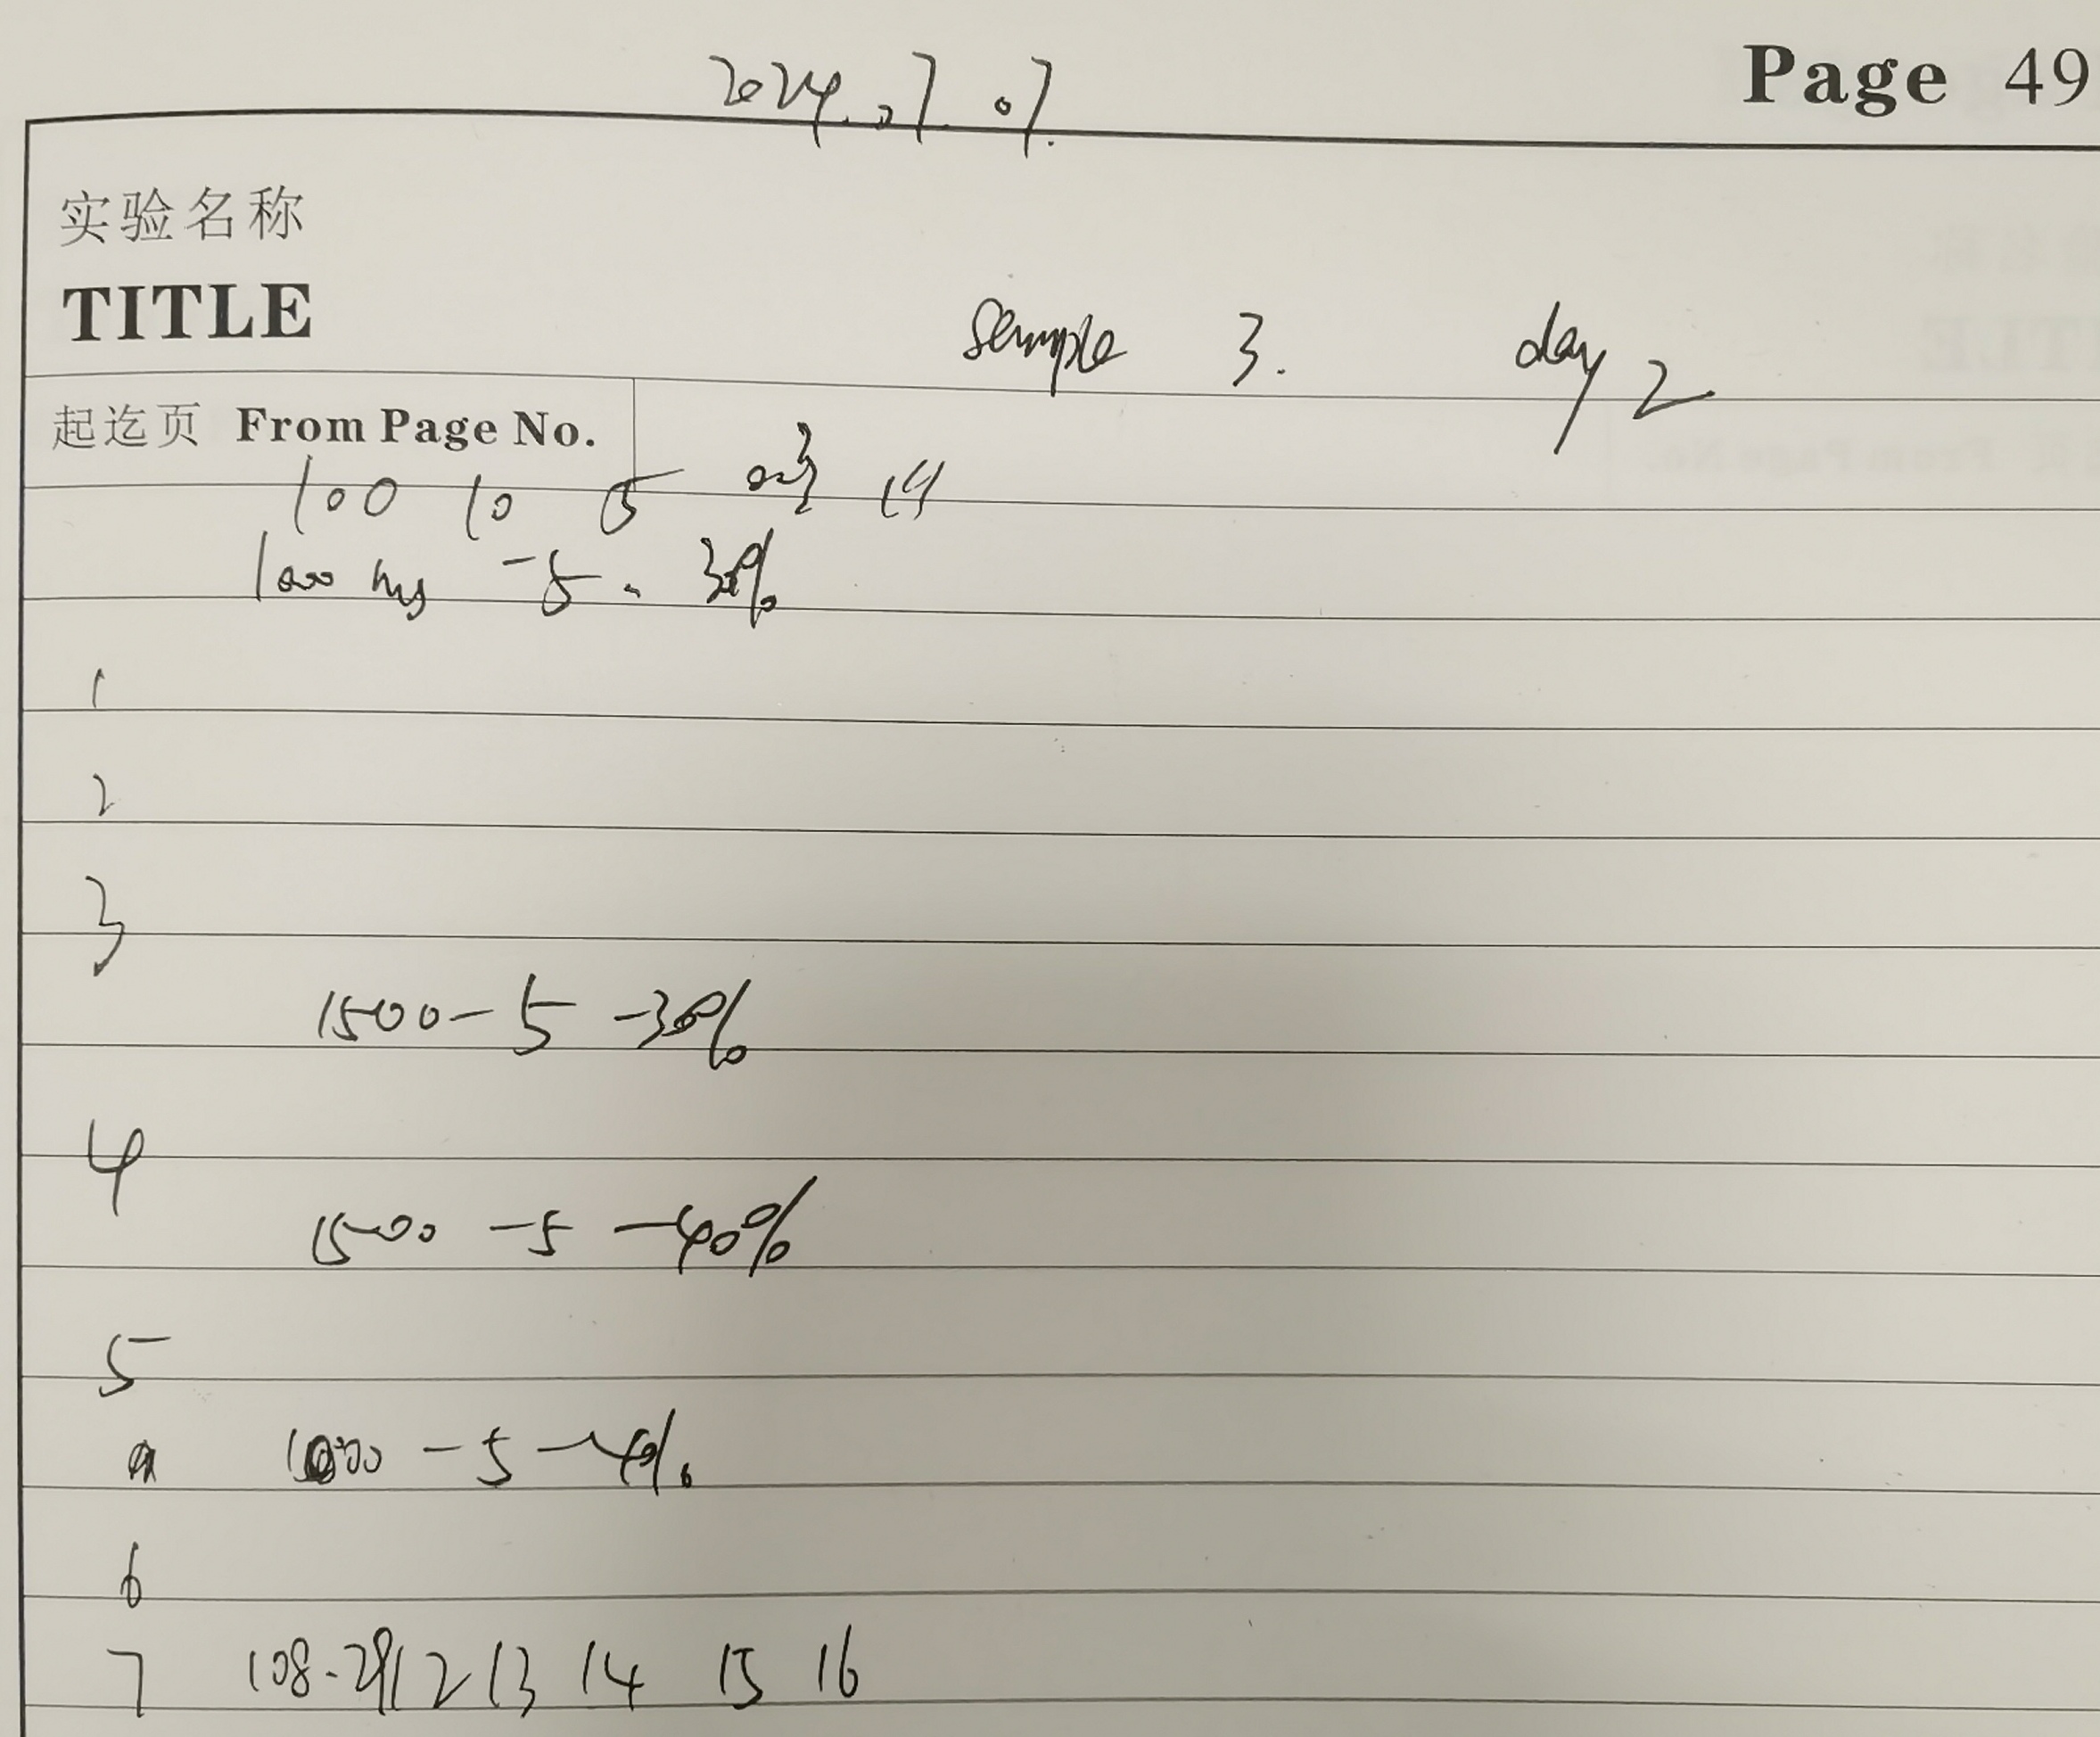 Page 49
2024.07.07.
实验名称
TITLE
sample 3. day 2
起迄页 From Page No.
100 10 5 003 14
1000 mg -5 - 30%
1
2
3
1500-5-30%
4
1500 -5 -40%
5
1000 -5-40%
6
7 108-29 12 13 14 15 16